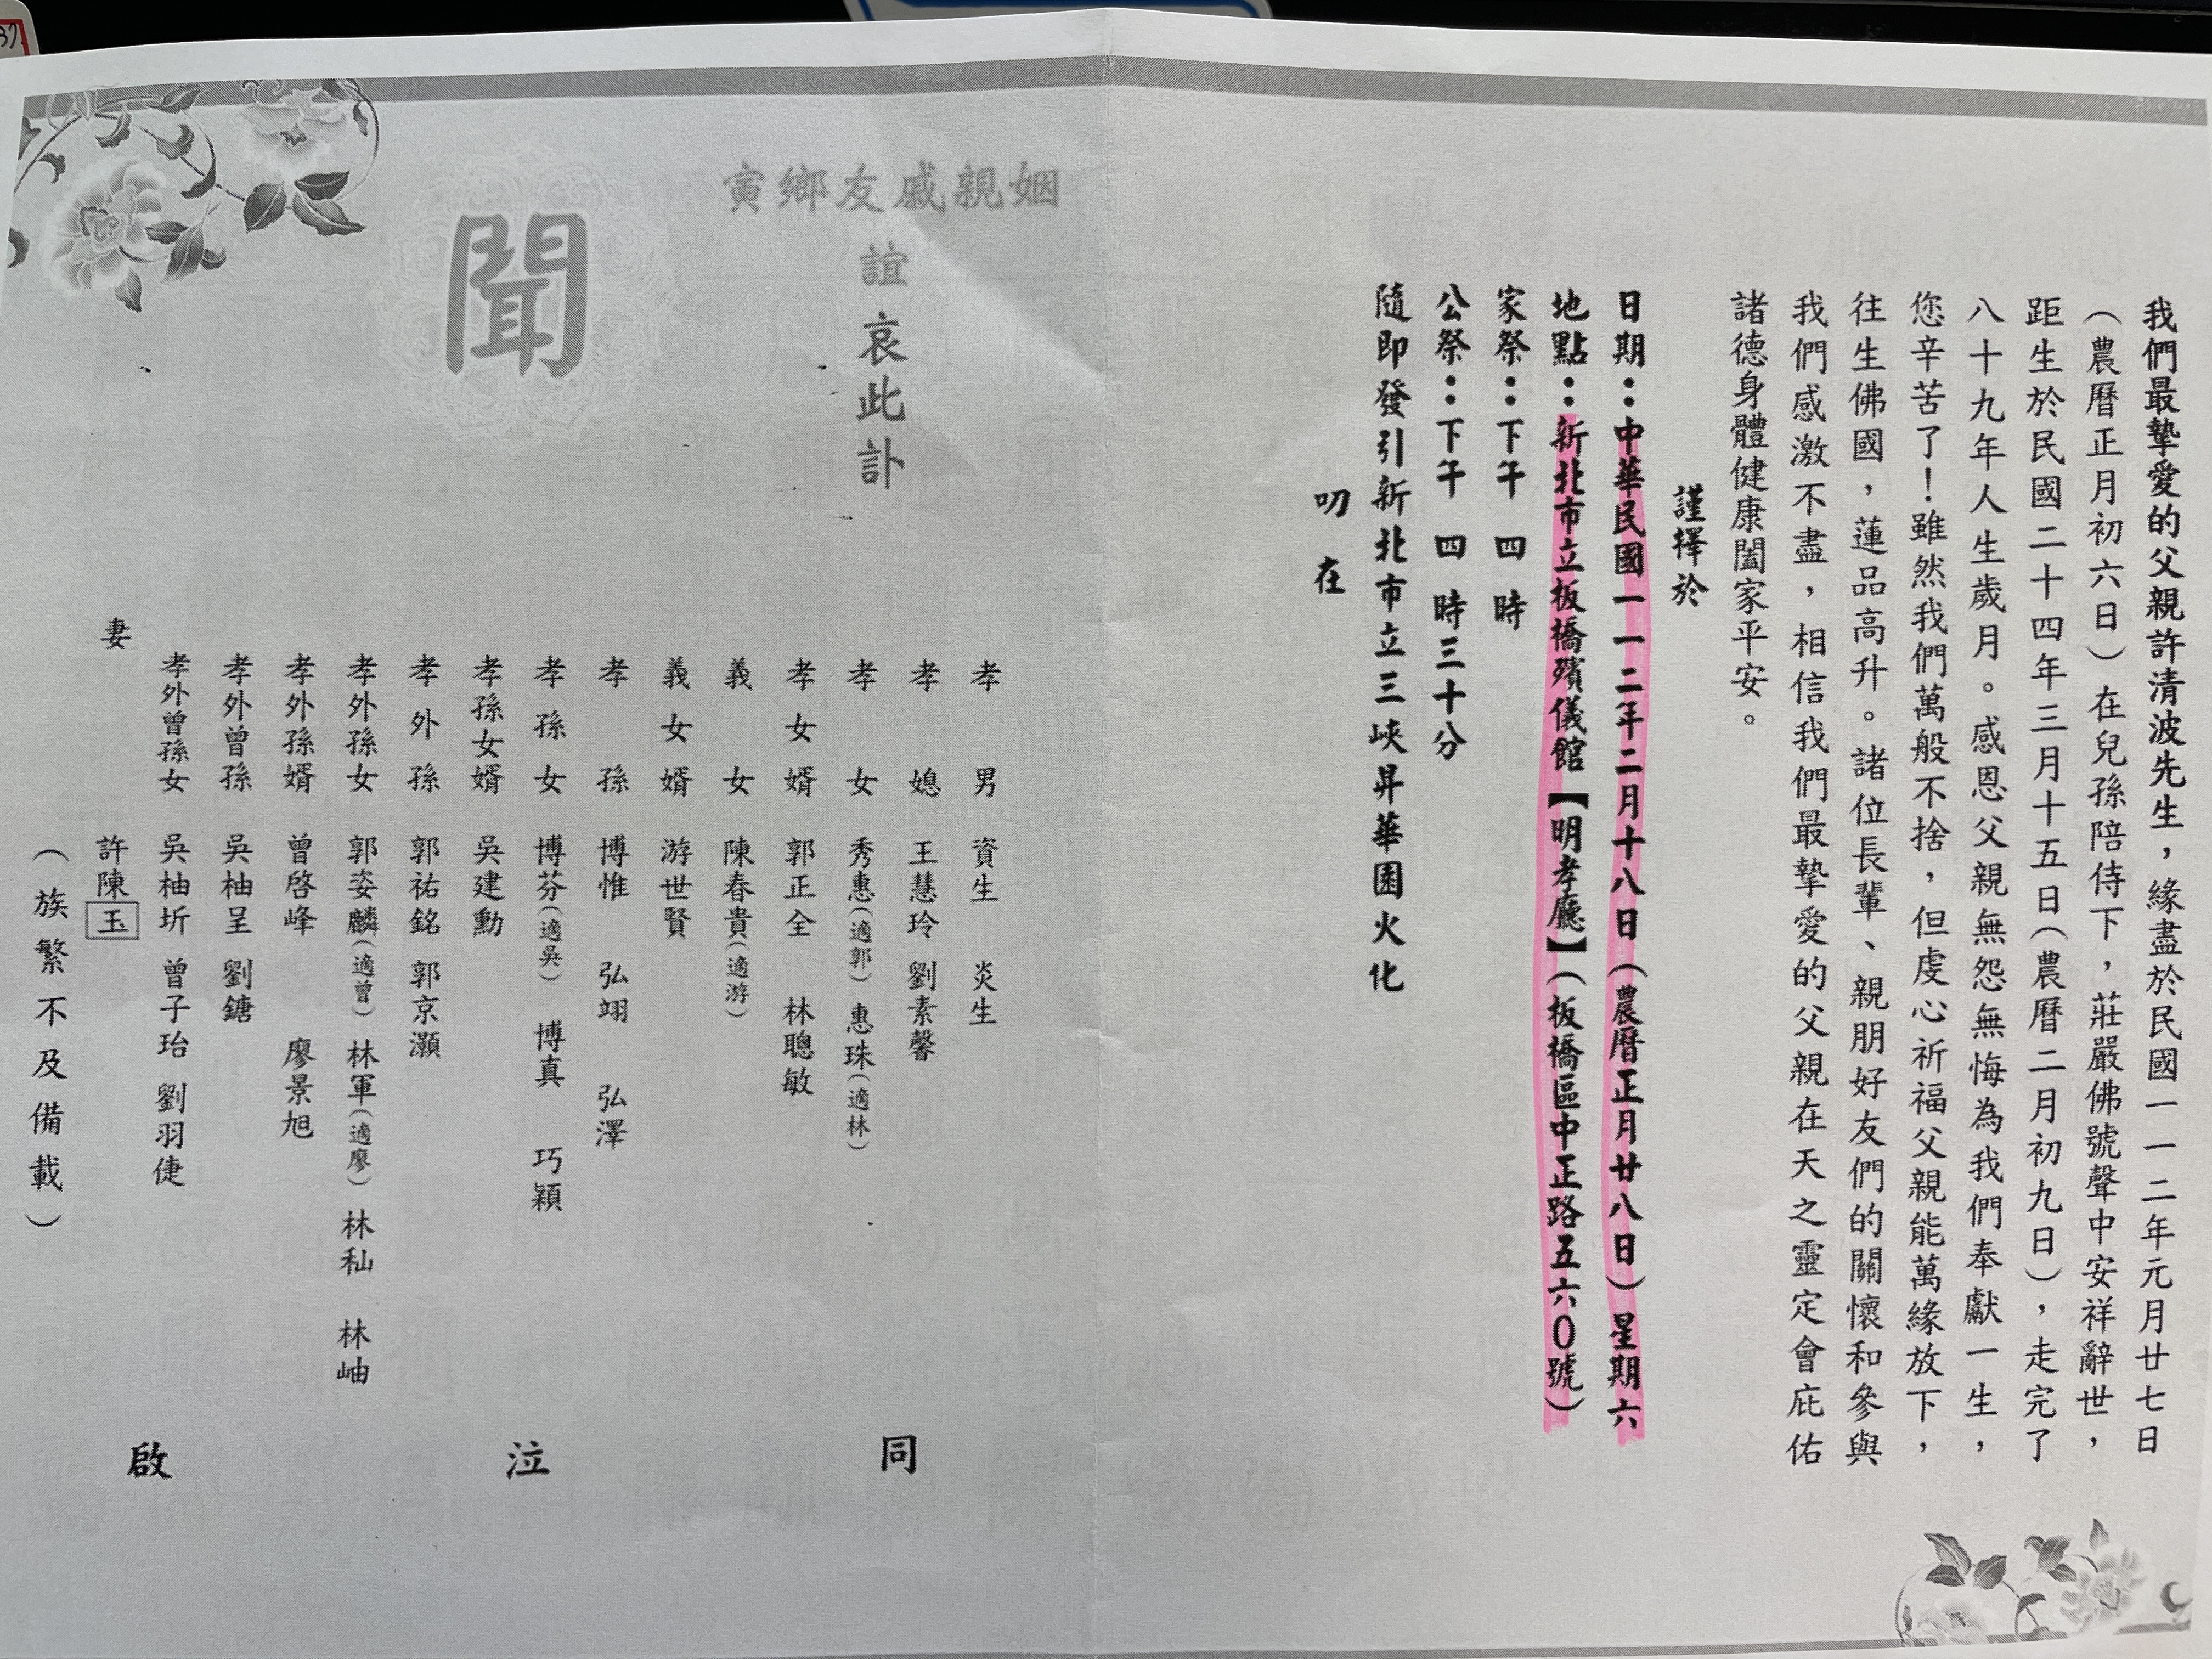 我們最摯愛的父親許清波先生，緣盡於民國一一二年元月廿七日
（農曆正月初六日）在兒孫陪侍下，莊嚴佛號聲中安祥辭世，
距生於民國二十四年三月十五日（農曆二月初九日），走完了
八十九年人生歲月。感恩父親無怨無悔為我們奉獻一生，
您辛苦了！雖然我們萬般不捨，但虔心祈福父親能萬緣放下，
往生佛國，蓮品高升。諸位長輩、親朋好友們的關懷和參與
我們感激不盡，相信我們最摯愛的父親在天之靈定會庇佑
諸德身體健康闔家平安。
謹擇於
日期：中華民國一一二年二月十八日（農曆正月廿八日）星期六
地點：新北市立板橋殯儀館【明孝廳】（板橋區中正路五六０號）
家祭：下午四時
公祭：下午四時三十分
隨即發引新北市立三峽昇華園火化
叨在
姻親戚友鄉寅
誼哀此訃
聞
孝男 資生 炎生
孝媳 王慧玲 劉素馨
孝女 秀惠（適郭） 惠珠（適林）
孝女婿 郭正全 林聰敏
義女 陳春貴（適游）
義女婿 游世賢
孝孫 博惟 弘翊 弘澤
孝孫女 博芬（適吳） 博真 巧穎
孝孫女婿 吳建勳
孝外孫 郭祐銘 郭京灝
孝外孫女 郭姿麟（適曾） 林軍（適廖） 林秈 林岫
孝外孫婿 曾啓峰 廖景旭
孝外曾孫 吳柚呈 劉鎕
孝外曾孫女 吳柚圻 曾子珆 劉羽倢
妻 許陳玉
（族繁不及備載）
同泣啟